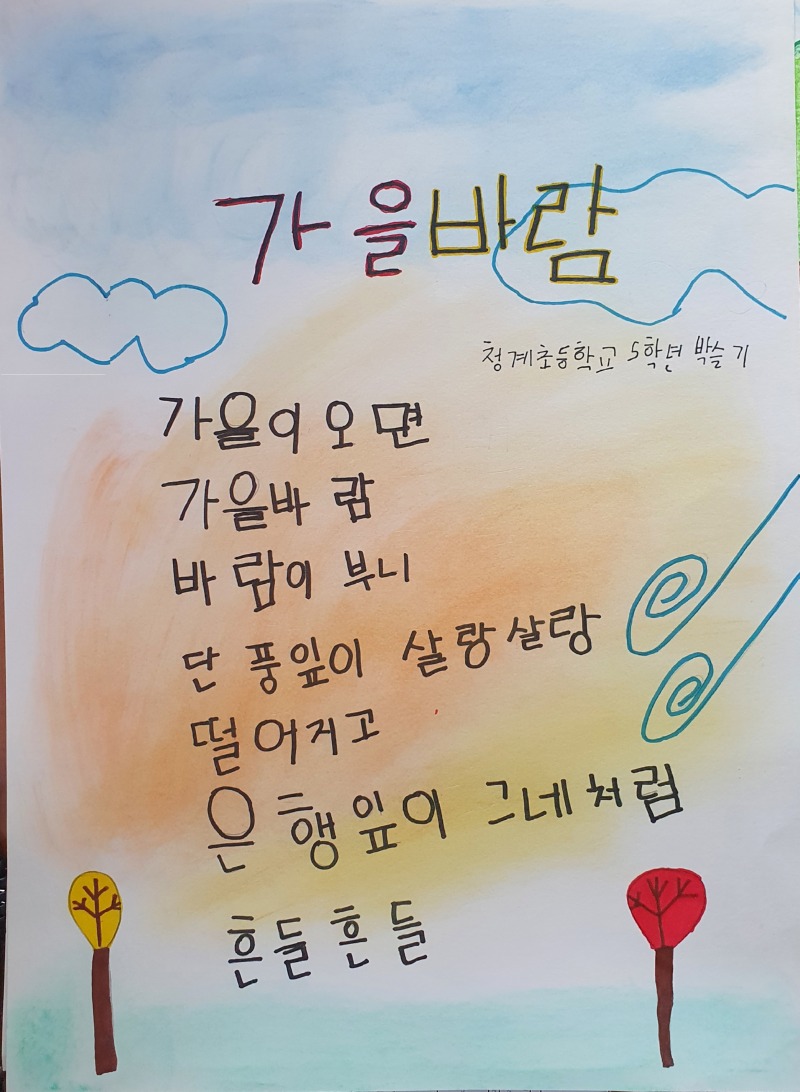 가을바람
청계초등학교 5학년 박슬기
가을이 오면
가을바람
바람이 부니
단풍잎이 살랑살랑
떨어지고
은행잎이 그네처럼
흔들흔들